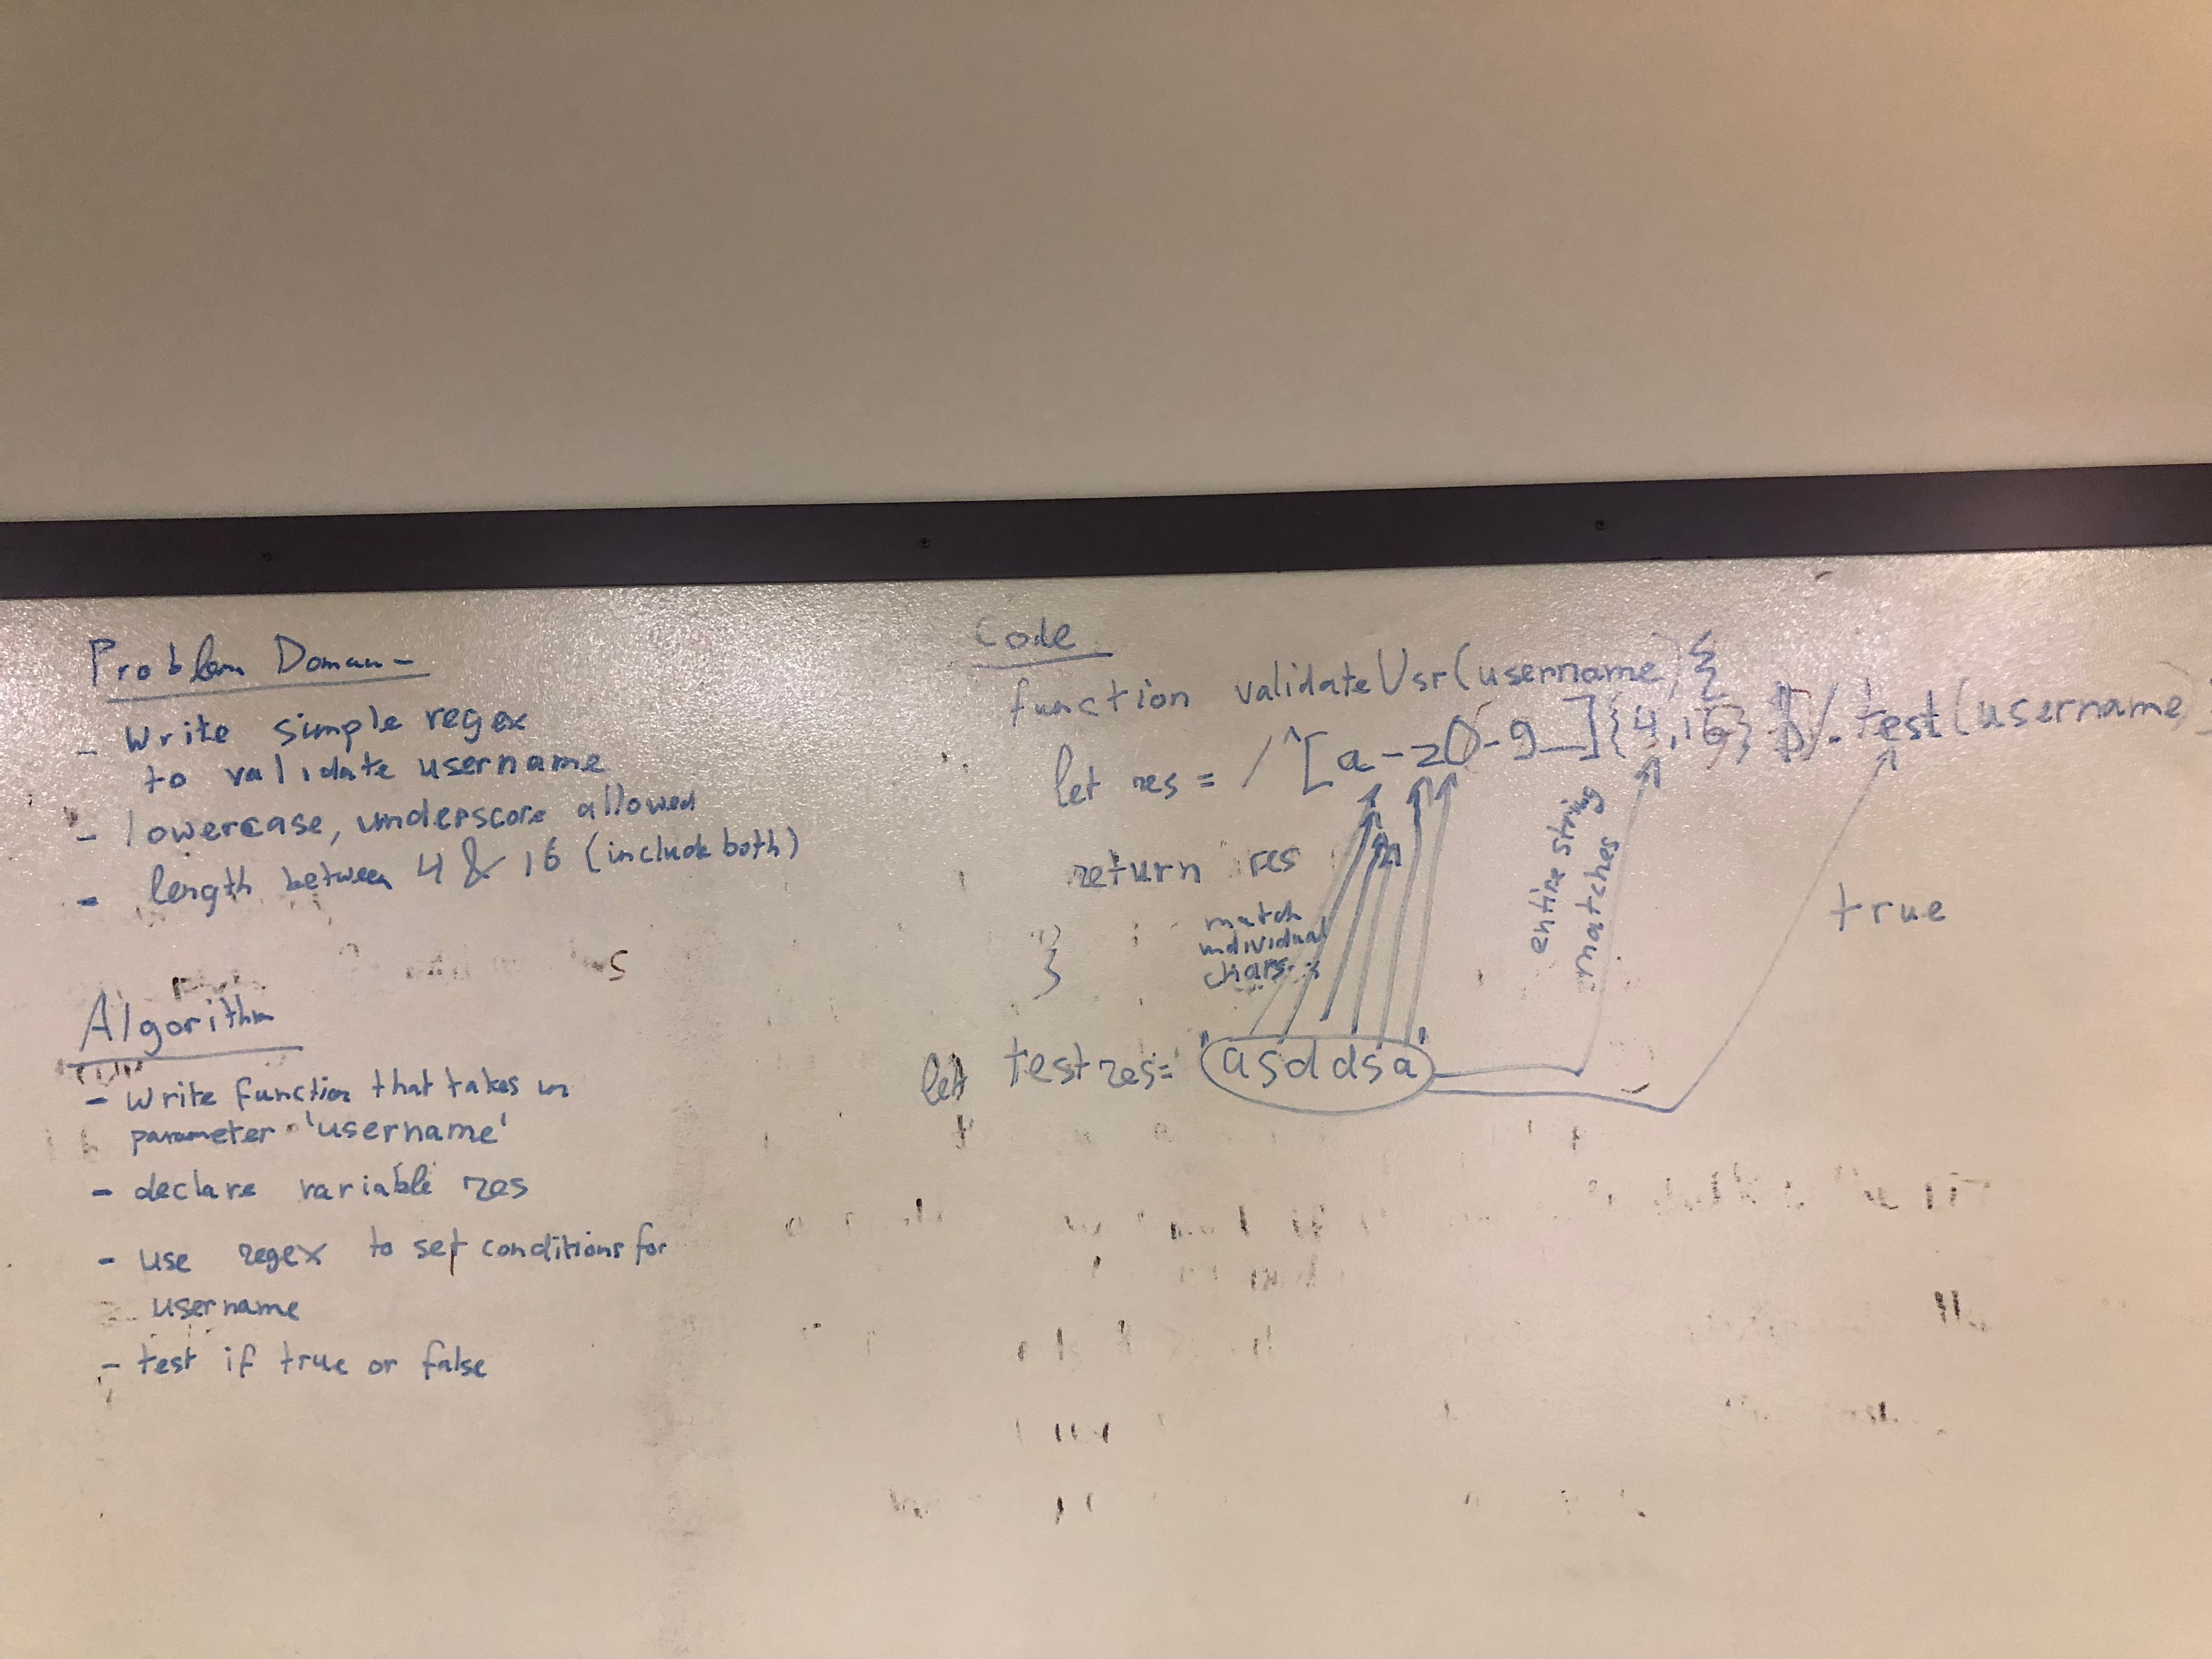 Problem Domain
- Write simple regex
to validate username
- lowercase, underscore allowed
- length between 4 & 16 (include both)
Algorithm
- Write function that takes in
parameter 'username'
- declare variable res
- use regex to set conditions for
username
- test if true or false
Code
function validateUsr(username) {
let res = /^[a-z0-9_]{4,16}$/.test(username)
return res
}
match
individual
chars
entire string
matches
true
let test res = 'asddsa'